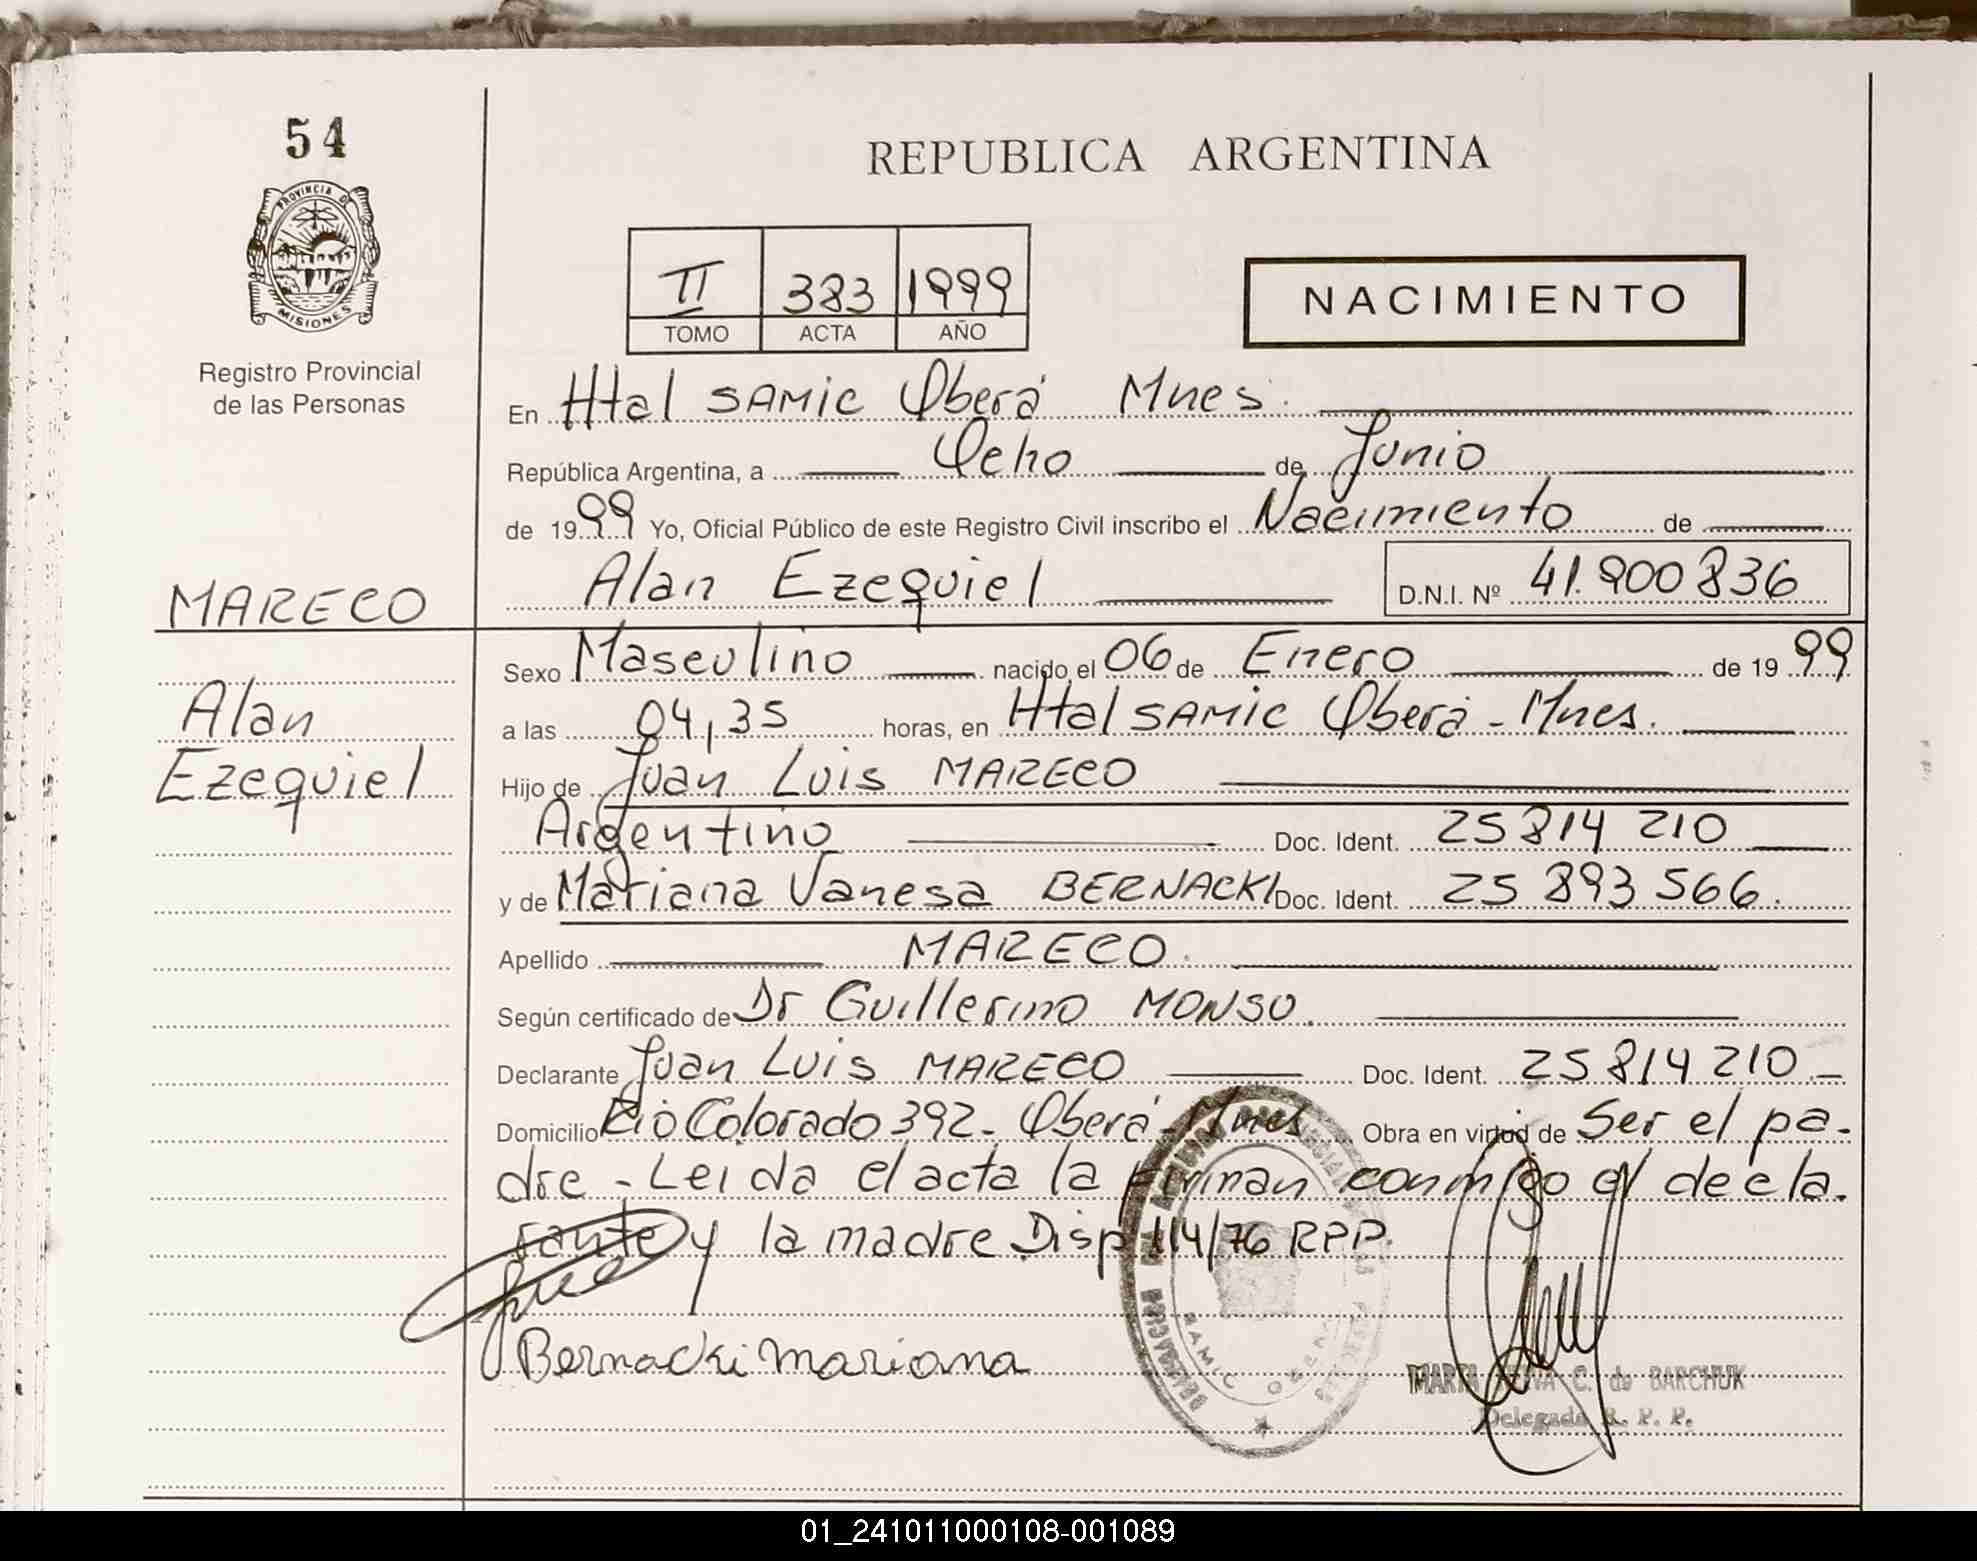 54
PROVINCIA D
MISIONES
Registro Provincial
de las Personas
REPUBLICA ARGENTINA
II 383 1999
TOMO ACTA AÑO
NACIMIENTO
En Htal SAMIC Oberá Mnes.
República Argentina, a Ocho de Junio
de 1999 Yo, Oficial Público de este Registro Civil inscribo el Nacimiento de
MARECO
Alan Ezequiel D.N.I. Nº 41.900836
Sexo Masculino nacido el 06 de Enero de 1999
Alan
a las 04,35 horas, en Htal SAMIC Oberá - Mnes.
Ezequiel
Hijo de Juan Luis MARECO
Argentino Doc. Ident. 25 814 210
y de Mariana Vanesa BERNACKI Doc. Ident. 25 893 566.
Apellido MARECO.
Según certificado de Dr Guillermo MONSO.
Declarante Juan Luis MARECO Doc. Ident. 25 814 210 -
Domicilio Rio Colorado 392 - Oberá - Mnes Obra en virtud de Ser el pa-
dre - Leida el acta la firman conmigo el decla-
rante y la madre Disp 114/76 RPP.
Bernacki Mariana
SAMIC OBERA
MARTA C. de BARCHUK
Delegada R. P. P.
01_241011000108-001089